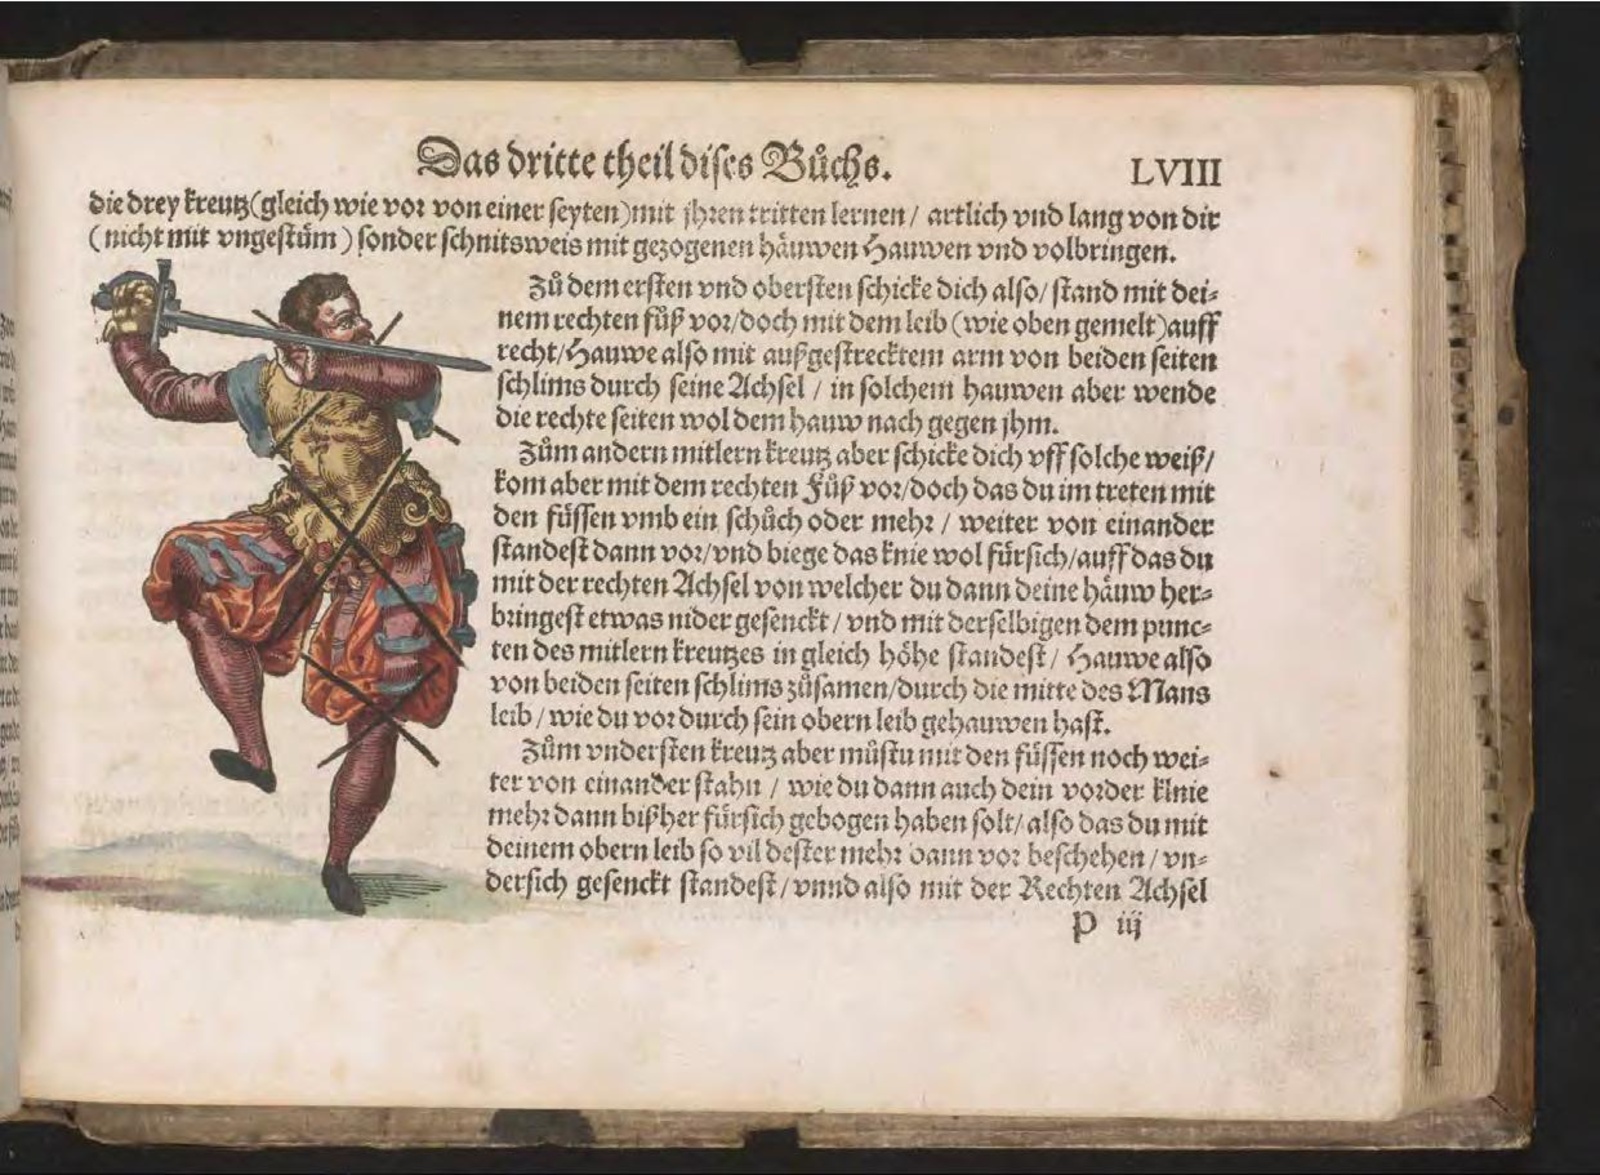 Das dritte theil dises Bůchs.
LVIII
die drey kreutz (gleich wie vor von einer seyten) mit jhren tritten lernen / artlich vnd lang von dir
(nicht mit vngestüm) sonder schnitsweis mit gezogenen häuwen Hauwen vnd volbringen.
Zů dem ersten vnd obersten schicke dich also / stand mit dei⸗
nem rechten fůß vor / doch mit dem leib (wie oben gemelt) auff
recht / Hauwe also mit außgestrecktem arm von beiden seiten
schlims durch seine Achsel / in solchem hauwen aber wende
die rechte seiten wol dem hauw nach gegen jhm.
Zům andern mitlern kreutz aber schicke dich vff solche weiß /
kom aber mit dem rechten Fůß vor / doch das du im treten mit
den füssen vmb ein schůch oder mehr / weiter von einander
standest dann vor / vnd biege das knie wol fürsich / auff das du
mit der rechten Achsel von welcher du dann deine häuw her⸗
bringest etwas nider gesenckt / vnd mit derselbigen dem punc⸗
ten des mitlern kreutzes in gleich höhe standest / Hauwe also
von beiden seiten schlims zůsamen / durch die mitte des Mans
leib / wie du vor durch sein obern leib gehauwen hast.
Zům vndersten kreutz aber můstu mit den füssen noch wei⸗
ter von einander stahn / wie du dann auch dein vorder klnie
mehr dann bißher fürsich gebogen haben solt / also das du mit
deinem obern leib so vil dester mehr dann vor beschehen / vn⸗
dersich gesenckt standest / vnnd also mit der Rechten Achsel
P iij